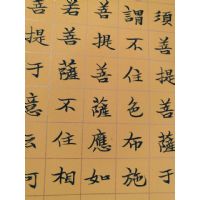 須菩提菩薩于
謂不住色布施
菩提菩薩應如
若菩薩不住相
菩提于意云